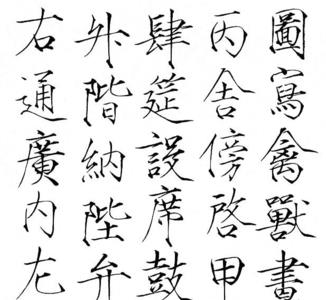 圖寫禽獸畫
丙舍傍啓甲
肆筵設席鼓
升階納陛弁
右通廣内左